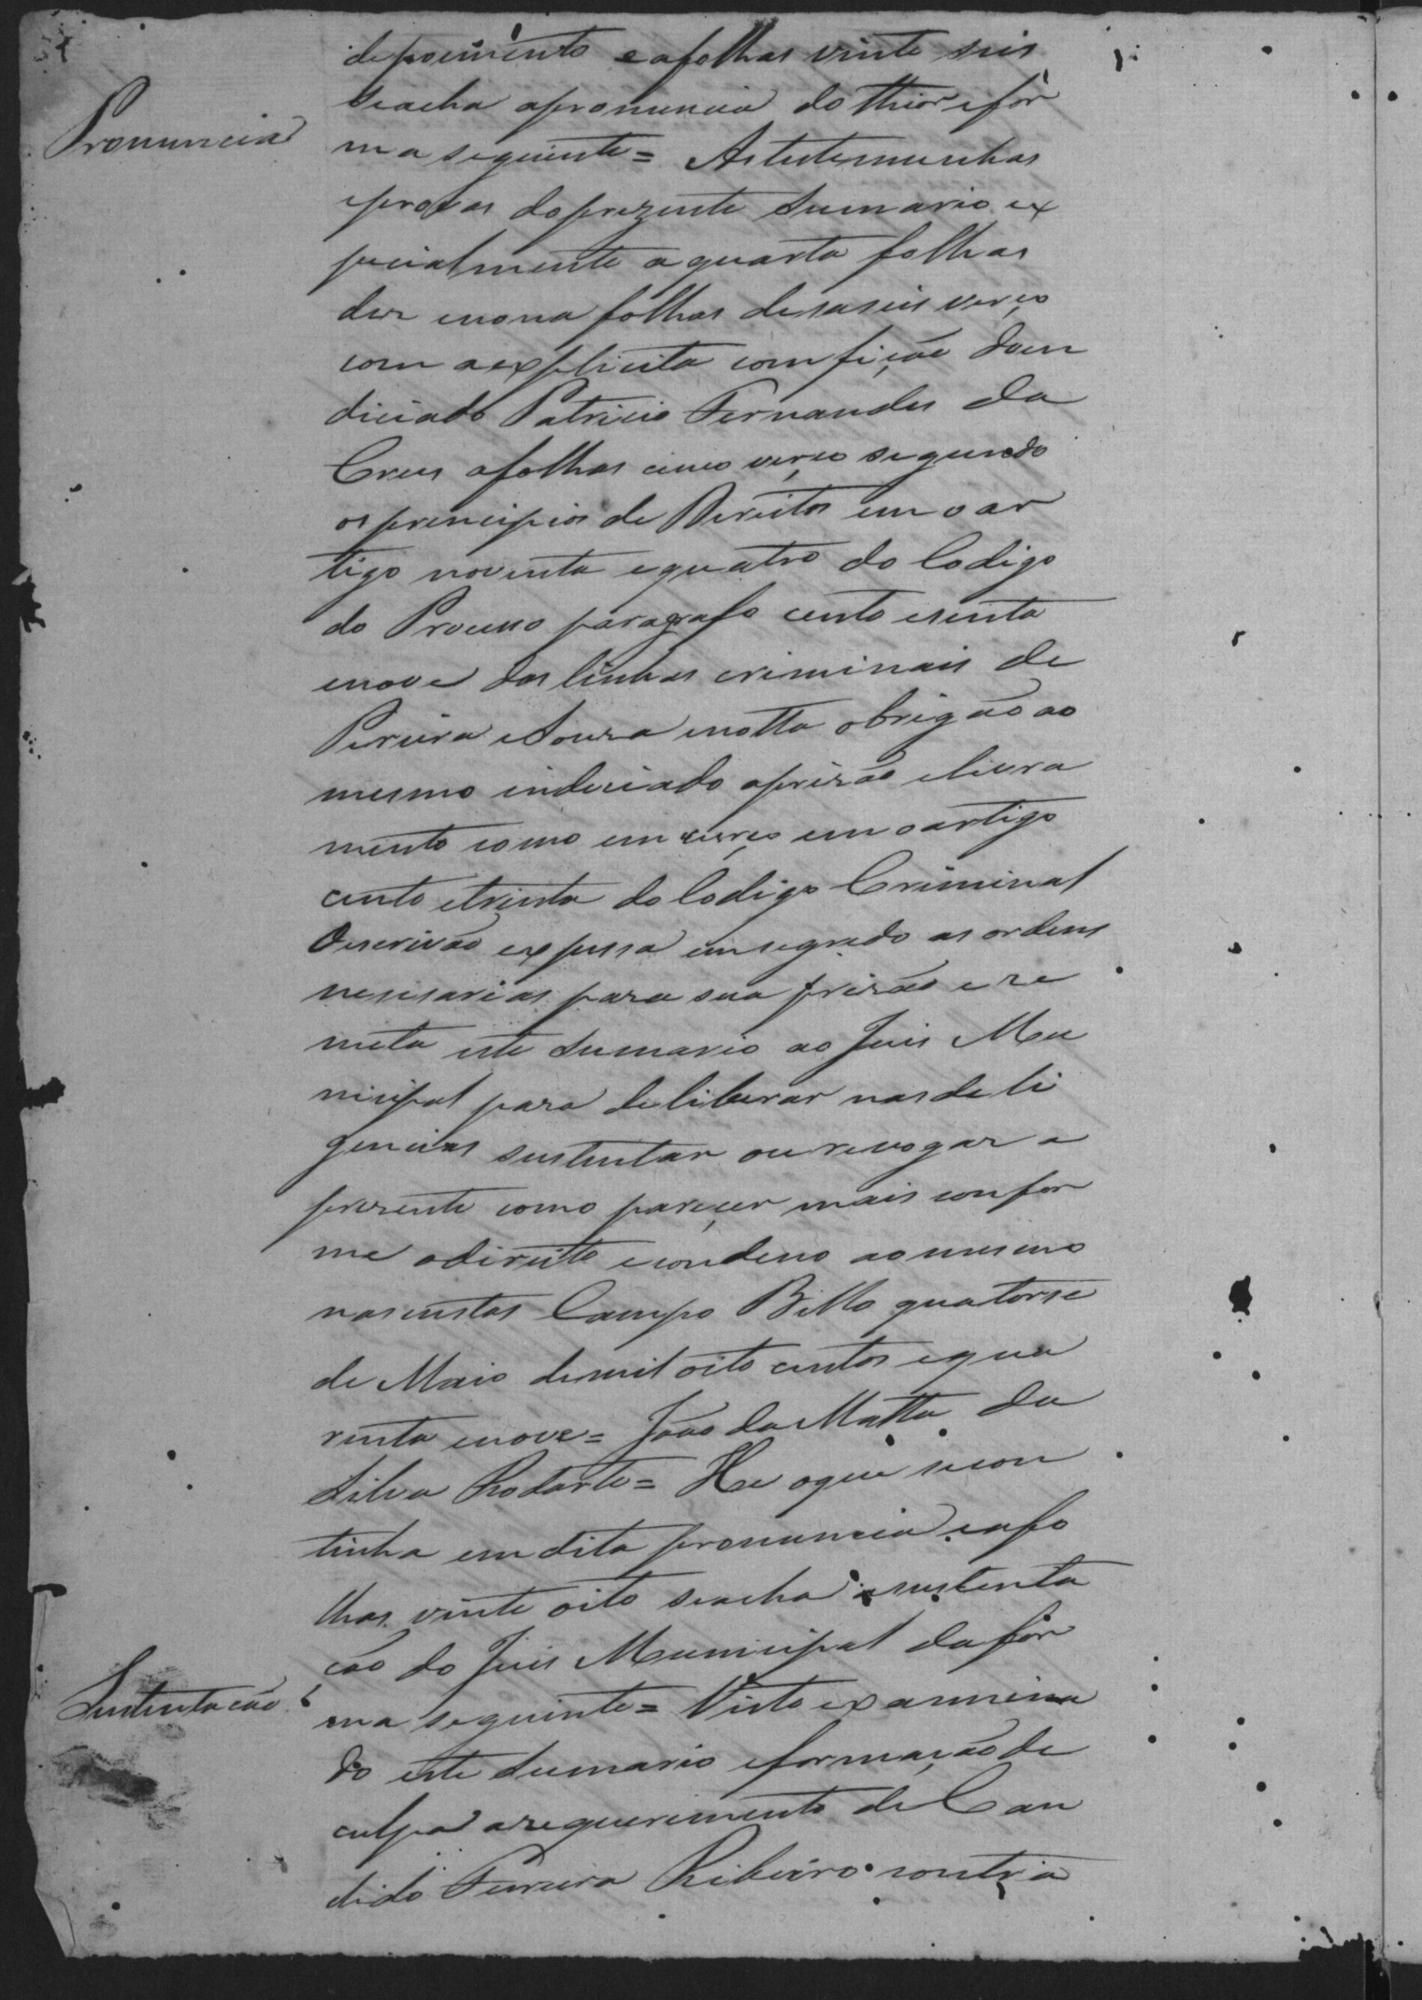 depoimento e afolhas vinte seis
Pronuncia
seacha apronuncia do thior efór
ma seguinte = As testemunhas
eprovas doprezente Sumario ex
pecialmente a quarta folhas
dez enona folhas desaseis verço
com aexplicita comfição doen
diciado Patricio Fernandes da
Crus afolhas cinco verço segundo
os principios de Direitos em o ar
tigo noventa equatro do Codigo
do Processo paragrafo cento esenta
enove das linhas criminais de
Pereira eSouza enotta obrigão ao
mesmo indiciado aprizão elivra
mento como em curço em o artigo
cento etrinta do Codigo Criminal
Oescrivão expessa emsegredo as ordens
nesesarias para sua prizão e re
meta este Sumario ao Juis Mu
nicipal para deliberar nas deli
gencias sustentar ou revogar a
prezente como pareçer mais confor
me odireito econdeno ao mesmo
nascustas Campo Bello quatorse
de Maio demil oito centos equa
renta enove = João da Matta da
Silva Rodarte = He oque secon
tinha em dita pronuncia eafo
lhas vinte oito seacha a sustenta
ção do Juis Municipal da fór
Sustentacão
ma seguinte = Visto examina
do este Sumario eformação de
culpa arequerimento de Can
dido Ferreira Ribeiro contra